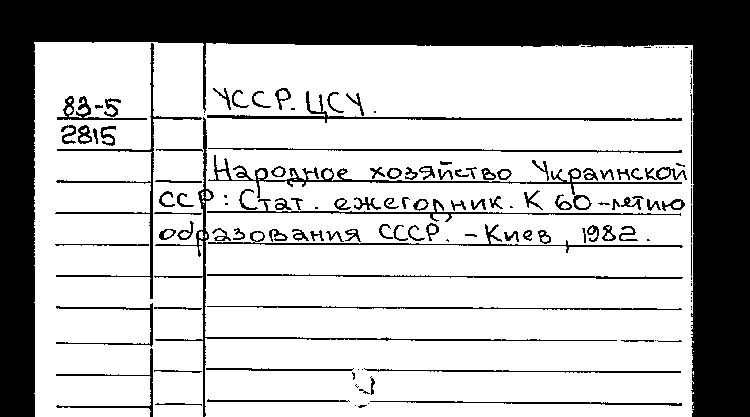 83-5
2815
УССР. ЦСУ.
Народное хозяйство Украинской
ССР: Стат. ежегодник. К 60-летию
образования СССР. - Киев, 1982.